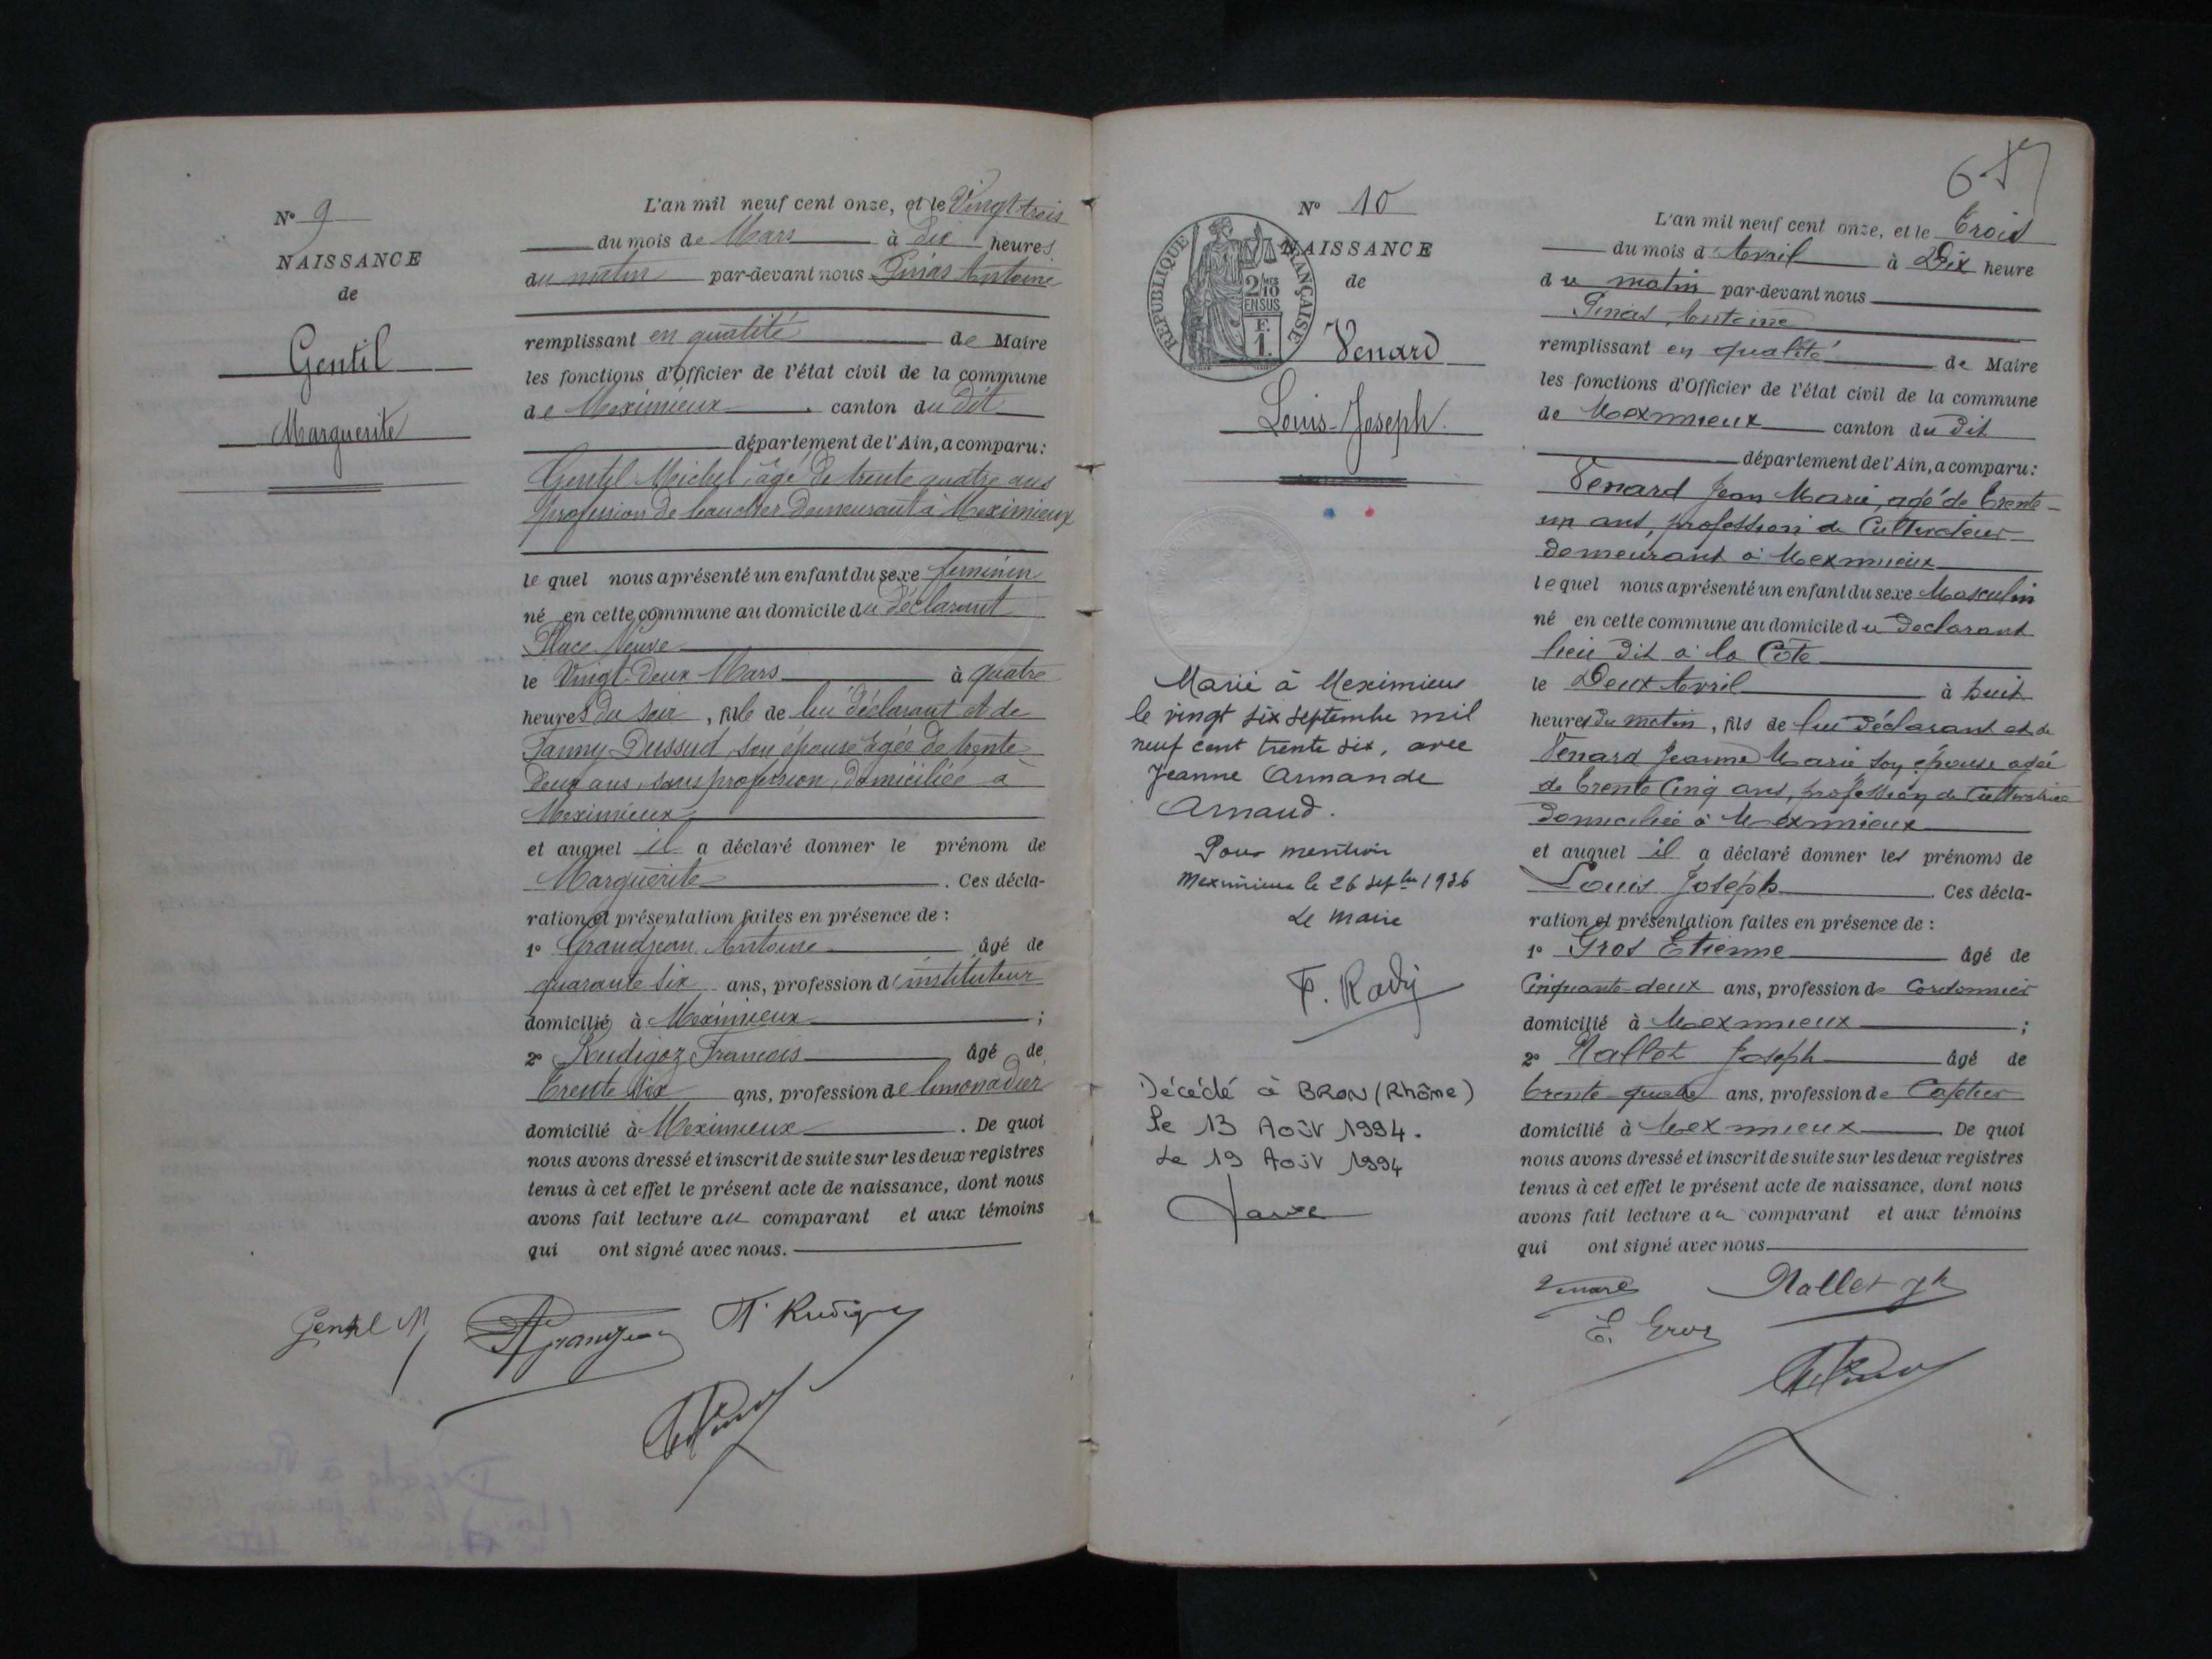 N° 9
NAISSANCE
de
Gentil
Marguerite
L'an mil neuf cent onze, et le Vingt trois
du mois de Mars à dix heures
du matin par-devant nous Pinas Antoine
remplissant en qualité de Maire
les fonctions d'Officier de l'état civil de la commune
de Meximieux canton du dit
département de l'Ain, a comparu :
Gentil Michel, âgé de trente quatre ans
profession de boucher demeurant à Meximieux
le quel nous a présenté un enfant du sexe féminin
né en cette commune au domicile du déclarant
Place Neuve
le Vingt-deux Mars à quatre
heures du soir, fille de lui déclarant et de
Fanny Dussud, son épouse âgée de trente-
deux ans, sans profession, domiciliée à
Meximieux
et auquel il a déclaré donner le prénom de
Marguerite. Ces décla-
ration et présentation faites en présence de :
1° Grandjean Antoine âgé de
quarante six ans, profession d'instituteur
domicilié à Meximieux ;
2° Rudigoz François âgé de
trente six ans, profession de limonadier
domicilié à Meximieux. De quoi
nous avons dressé et inscrit de suite sur les deux registres
tenus à cet effet le présent acte de naissance, dont nous
avons fait lecture au comparant et aux témoins
qui ont signé avec nous.
Gentil M
F. Rudigoz
657
N° 10
REPUBLIQUE FRANÇAISE
2/10 MES
EN SUS
F.
1.
NAISSANCE
de
Venard
Louis-Joseph.
Marié à Meximieux
le vingt six septembre mil
neuf cent trente six, avec
Jeanne Armande
Arnaud.
Pour mention
Meximieux le 26 septbre 1936
Le maire
Décédé à BRON (Rhône)
Le 13 Août 1994.
Le 19 Août 1994
L'an mil neuf cent onze, et le Trois
du mois d'Avril à Dix heure
du matin par-devant nous
Pinas Antoine
remplissant en qualité de Maire
les fonctions d'Officier de l'état civil de la commune
de Meximieux canton du dit
département de l'Ain, a comparu :
Venard Jean Marie, agé de trente-
un ans, profession de Cultivateur
demeurant à Meximieux
le quel nous a présenté un enfant du sexe Masculin
né en cette commune au domicile du déclarant
lieu dit à la Côte
le Deux Avril à huit
heures du matin, fils de lui déclarant et de
Venard Jeanne Marie son épouse agée
de trente Cinq ans, profession de Cultivatrice
domiciliée à Meximieux
et auquel il a déclaré donner les prénoms de
Louis Joseph. Ces décla-
ration et présentation faites en présence de :
1° Gros Etienne âgé de
Cinquante-deux ans, profession de Cordonnier
domicilié à Meximieux ;
2° Nallet Joseph âgé de
trente quatre ans, profession de Cafetier
domicilié à Meximieux De quoi
nous avons dressé et inscrit de suite sur les deux registres
tenus à cet effet le présent acte de naissance, dont nous
avons fait lecture au comparant et aux témoins
qui ont signé avec nous
Venard
Nallet Jh
E. Gros